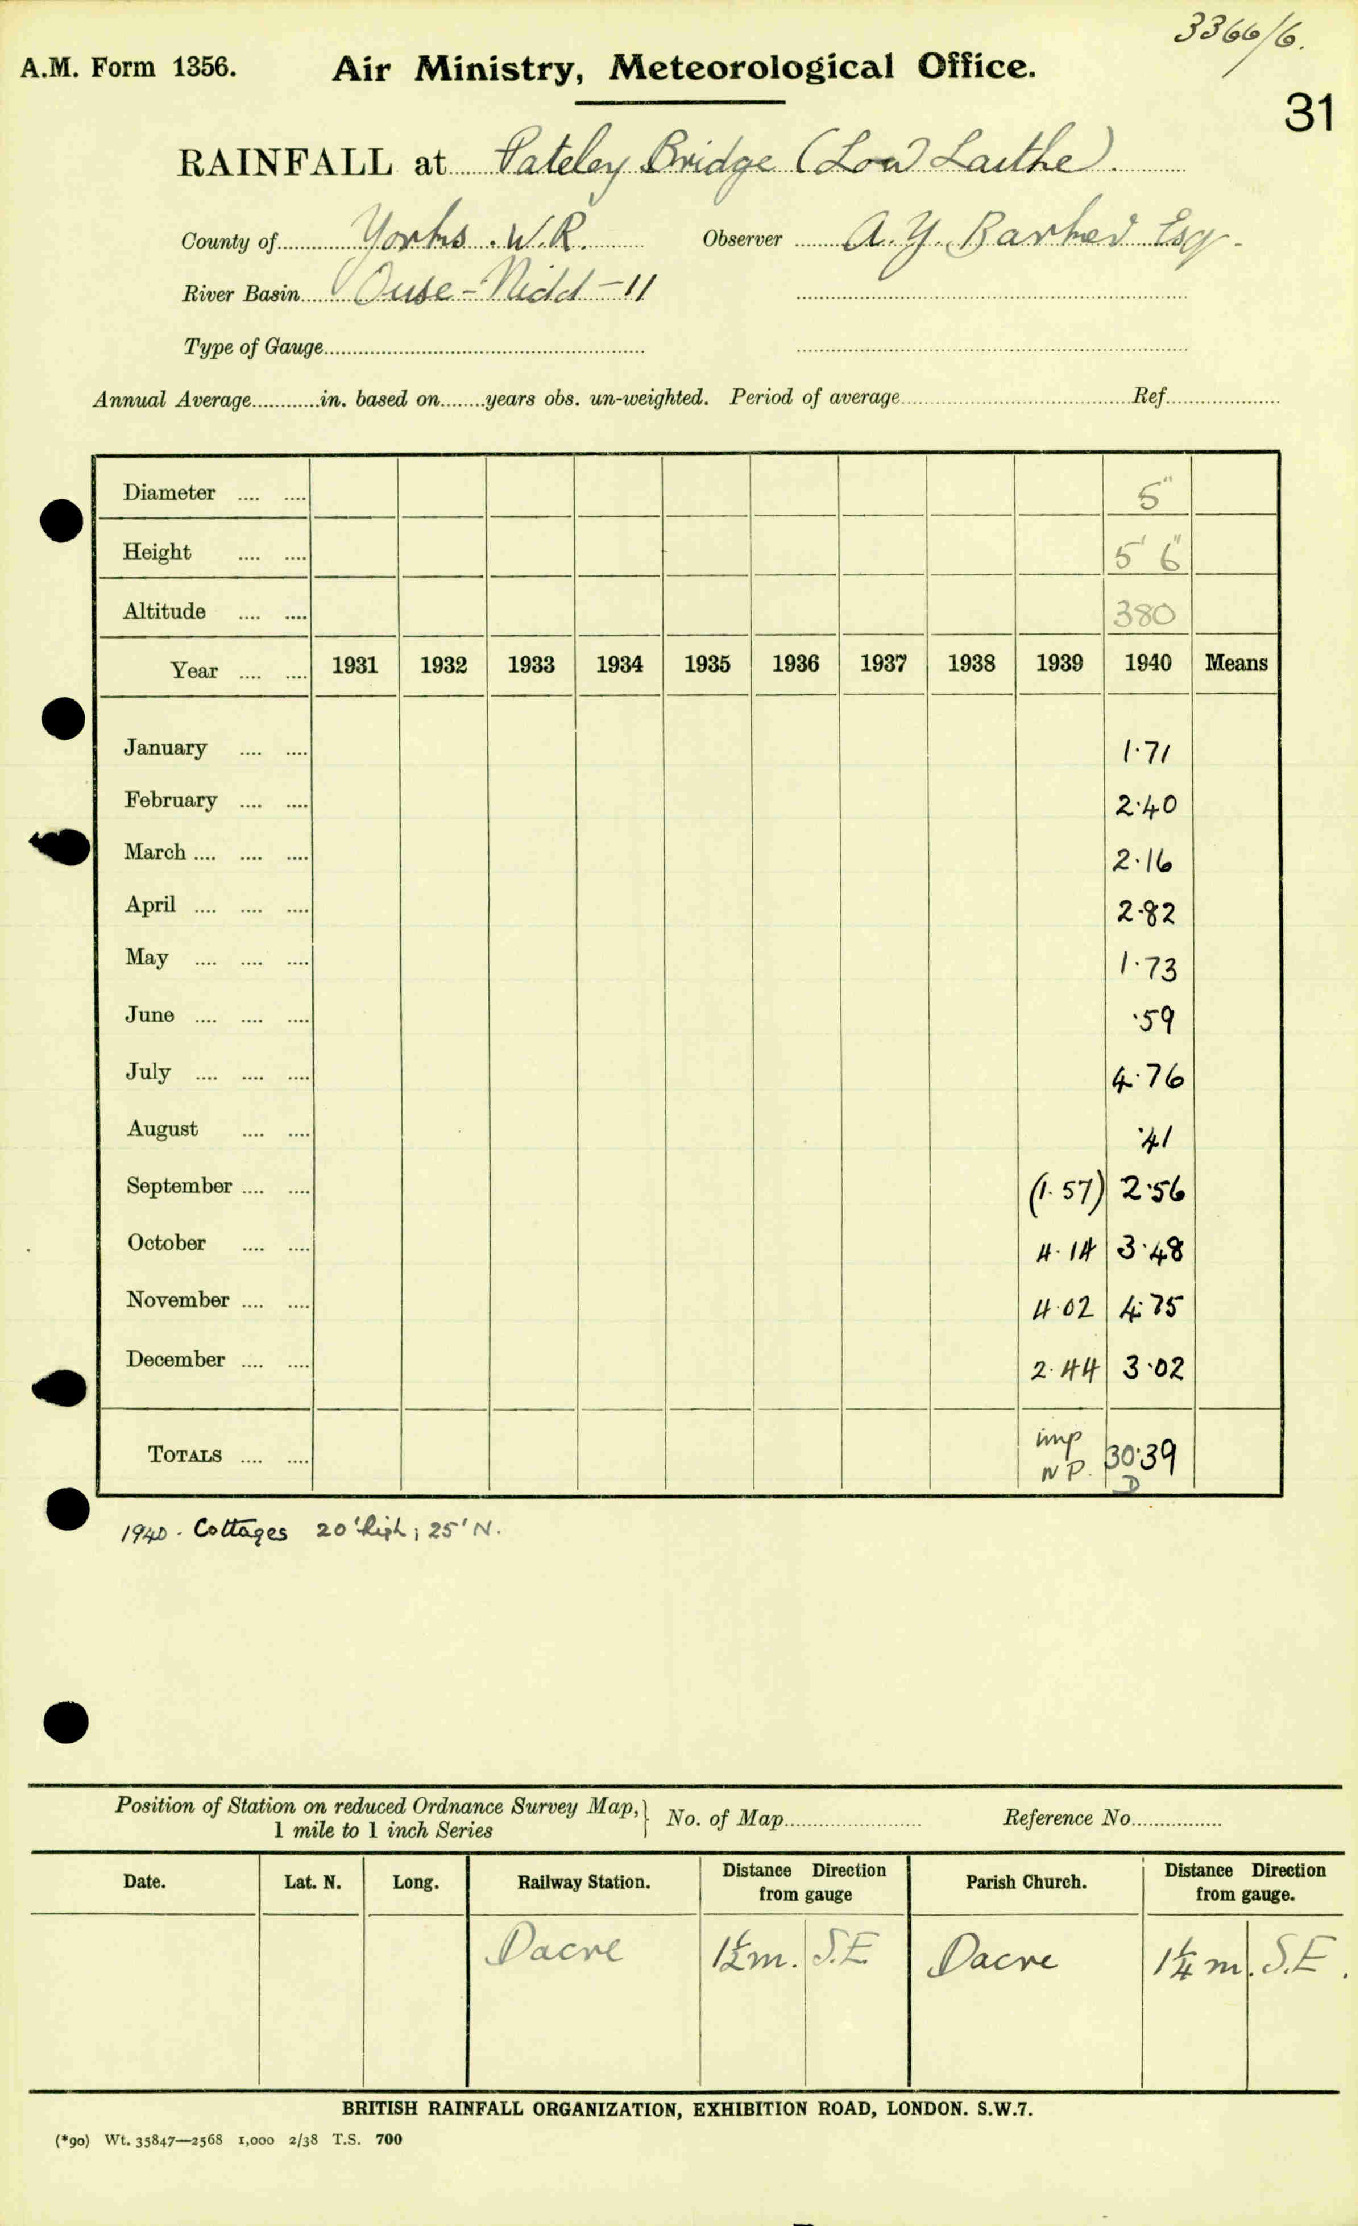 3366/6.
A.M. Form 1356. Air Ministry, Meteorological Office.
31
RAINFALL at Pateley Bridge (Low Laithe).
County of Yorks. W.R. Observer A. Y. Barker Esq.
River Basin Ouse - Nidd - 11
Type of Gauge
Annual Average in. based on years obs. un-weighted. Period of average Ref.
Diameter 5"
Height 5' 6"
Altitude 380
Year 1931 1932 1933 1934 1935 1936 1937 1938 1939 1940 Means
January 1·71
February 2·40
March 2·16
April 2·82
May 1·73
June ·59
July 4·76
August ·41
September (1·57) 2·56
October 4·14 3·48
November 4·02 4·75
December 2·44 3·02
TOTALS imp NP. 30·39 D
1940 · Cottages 20' high; 25' N.
Position of Station on reduced Ordnance Survey Map,} No. of Map Reference No.
1 mile to 1 inch Series
Date. Lat. N. Long. Railway Station. Distance Direction from gauge Parish Church. Distance Direction from gauge.
Dacre 1½m. S.E. Dacre 1¼ m. S.E.
BRITISH RAINFALL ORGANIZATION, EXHIBITION ROAD, LONDON. S.W.7.
(*90) Wt. 35847—2568 1,000 2/38 T.S. 700